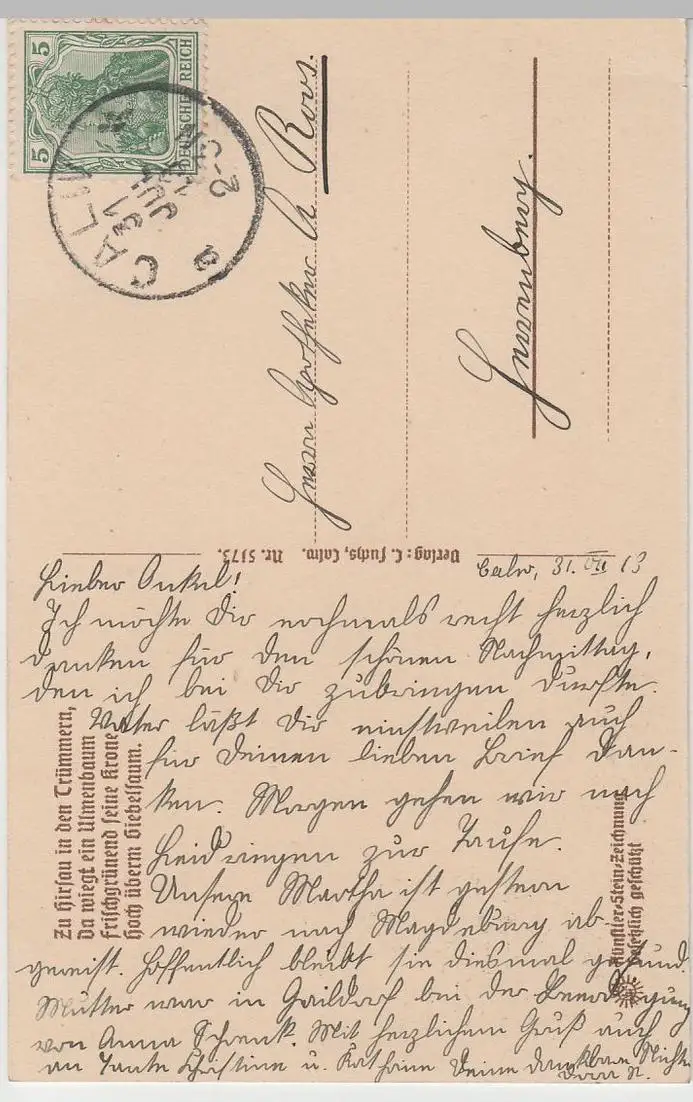 5 5
DEUTSCHES REICH
CALW
31 JUL 13
2-3 N
a
Herrn Apotheker A. Roos.
Verlag: C. Fuchs, Calw. Nr. 5173.
Calw, 31. VII 13
Lieber Onkel!
Ich möchte Dir nochmals recht herzlich
danken für den schönen Nachmittag,
den ich bei Dir zubringen durfte.
Vater läßt Dir einstweilen auch
für Deinen lieben Brief dan-
ken. Morgen gehen wir nach
zur Taufe.
Unsere Martha ist gestern
wieder nach Magdeburg ab-
gereist. Hoffentlich bleibt sie diesmal gesund.
Mutter war in Gaildorf bei der Beerdigung
von Anna Schenk. Mit herzlichem Gruß auch
an Tante Christine u. Deine dankbare Nichte
Zu Hirsau in den Trümmern,
Da wiegt ein Ulmenbaum
Frischgrünend seine Krone
Hoch überm Giebelsaum.
Künstler-Stein-Zeichnung
Gesetzlich geschützt